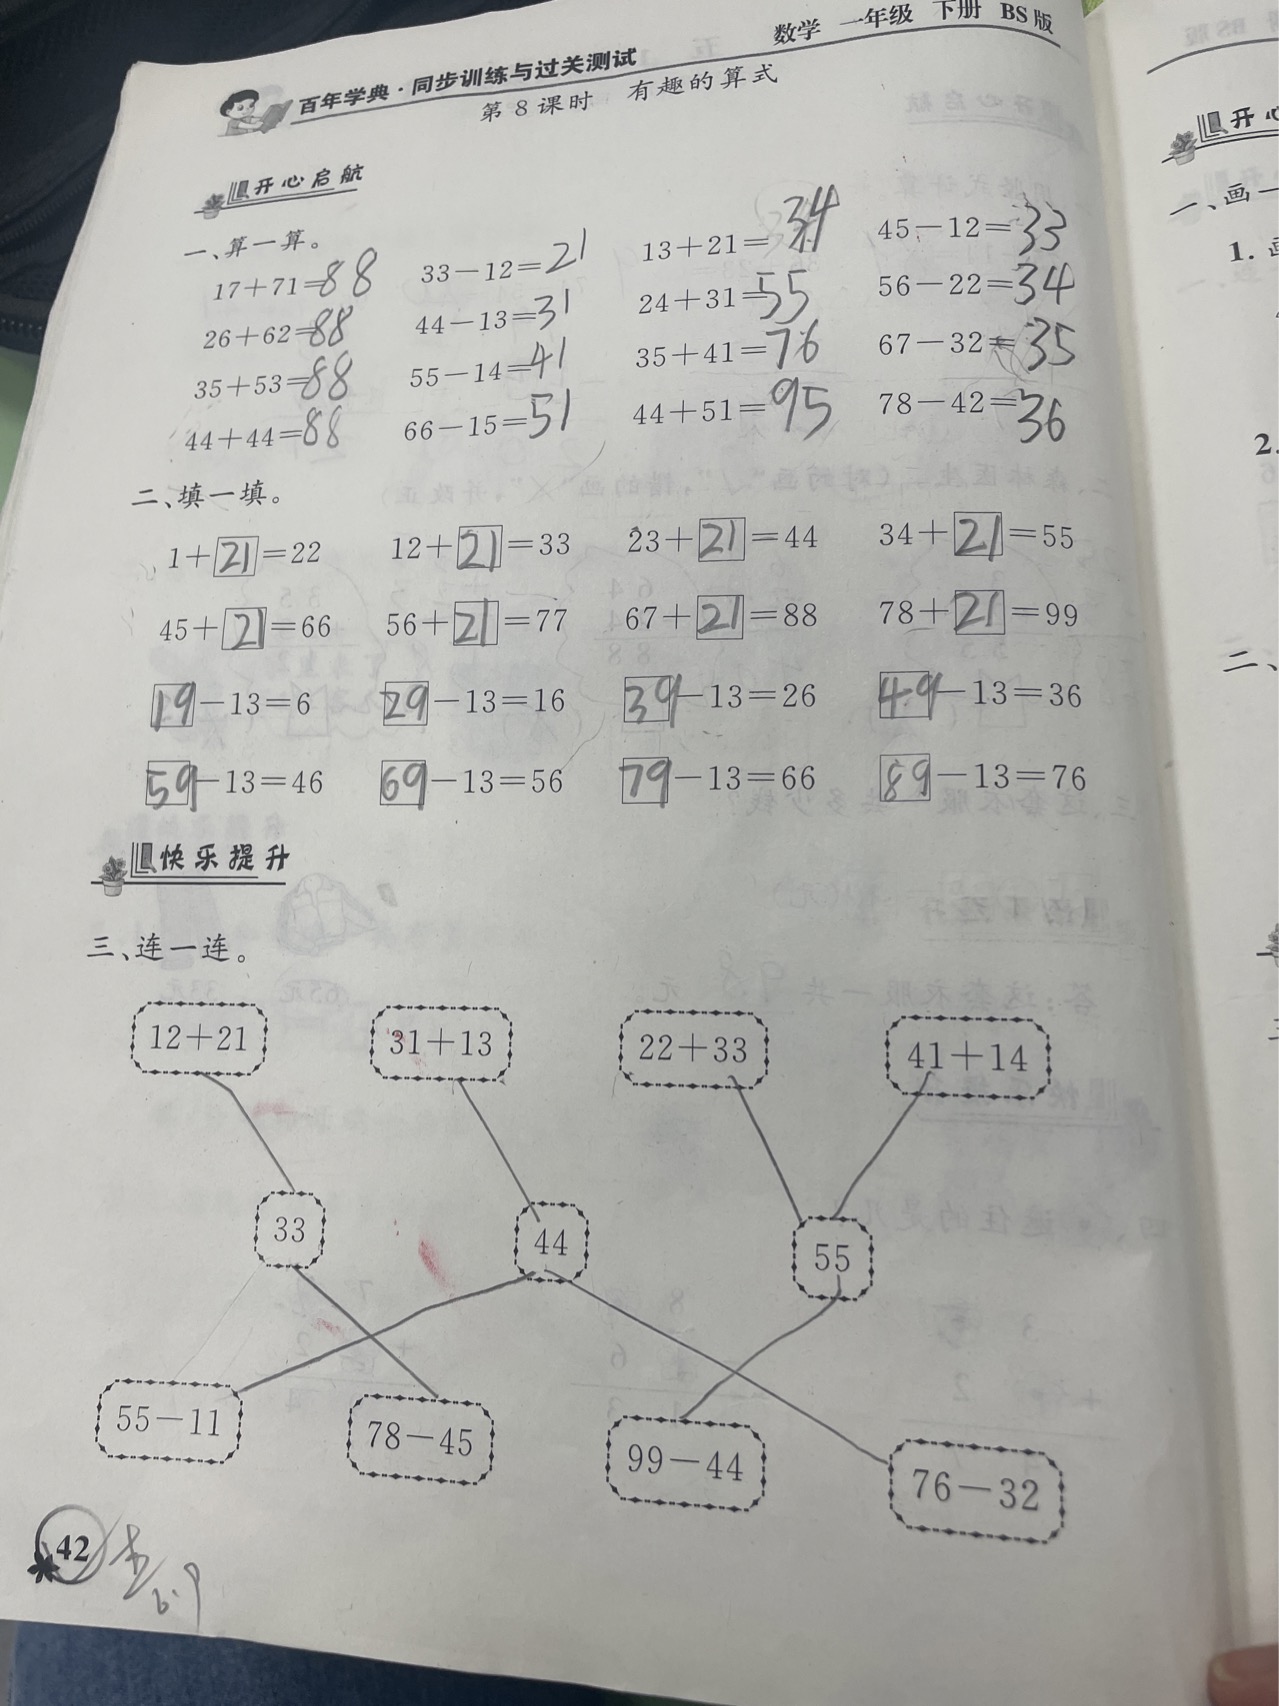 百年学典·同步训练与过关测试 数学 一年级 下册 BS版
第8课时 有趣的算式
开心启航
一、算一算。
17+71=88 33-12=21 13+21=34 45-12=33
26+62=88 44-13=31 24+31=55 56-22=34
35+53=88 55-14=41 35+41=76 67-32=35
44+44=88 66-15=51 44+51=95 78-42=36
二、填一填。
1+21=22 12+21=33 23+21=44 34+21=55
45+21=66 56+21=77 67+21=88 78+21=99
19-13=6 29-13=16 39-13=26 49-13=36
59-13=46 69-13=56 79-13=66 89-13=76
快乐提升
三、连一连。
12+21 31+13 22+33 41+14
33 44 55
55-11 78-45 99-44 76-32
42
6.9
开心
一、画一
1.
2.
二、